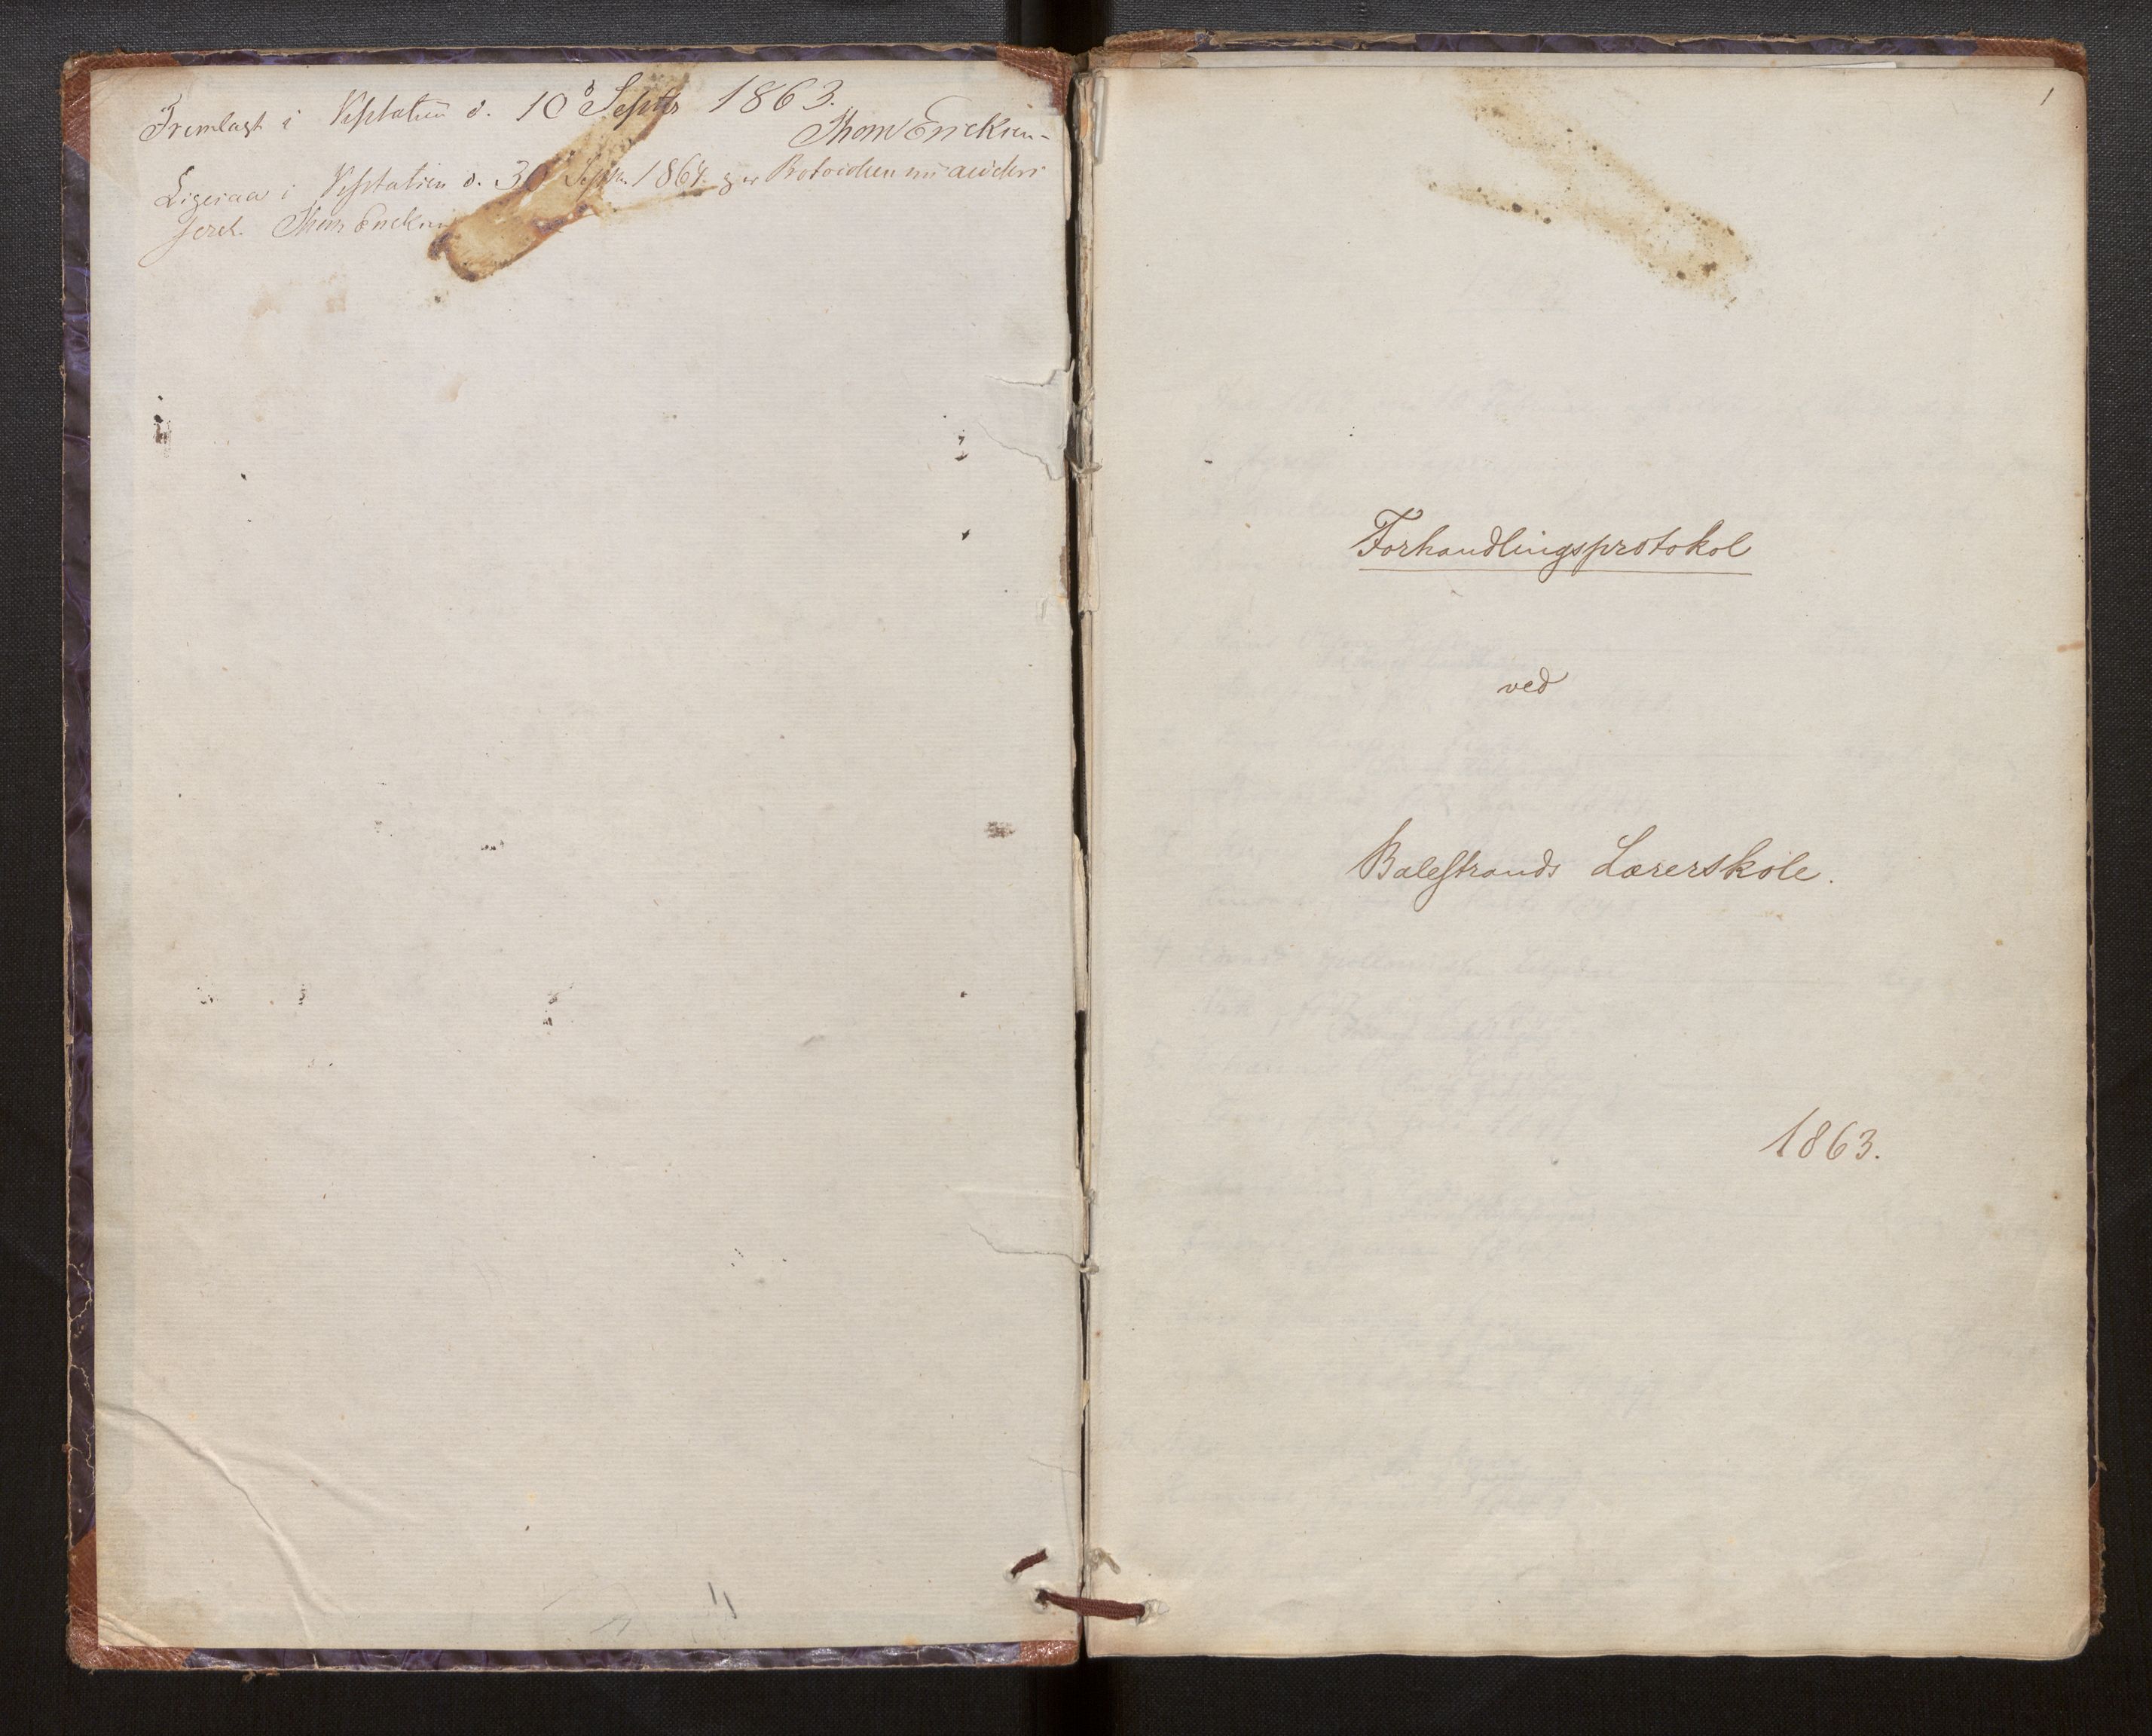 Fremlagt i Visitatien d. 10d Septbr 1863.
Thom Ericksen
Ligesaa i Visitatien d. 30 Septbr. 1864
Thom Ericksen
1
Forhandlingsprotokol
ved
Balestrands Lærerskole.
1863.